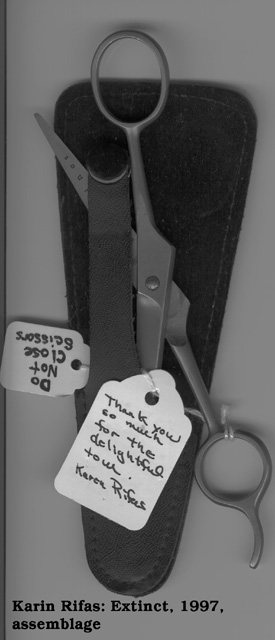 Do
Not
Close
Scissors
Thank you
so much
for the
delightful
tour.
Karin Rifas
Karin Rifas: Extinct, 1997,
assemblage